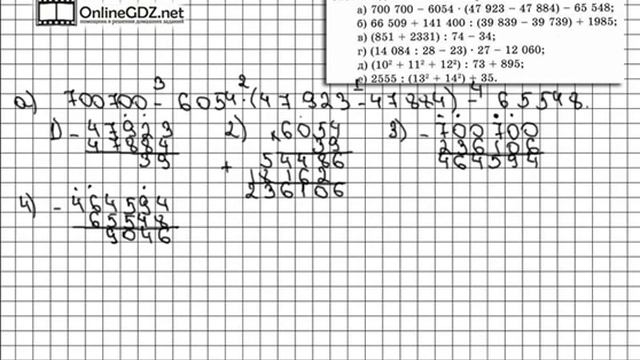 OnlineGDZ.net
помощник в решении домашних заданий
а) 700 700 – 6054 · (47 923 – 47 884) – 65 548;
б) 66 509 + 141 400 : (39 839 – 39 739) + 1985;
в) (851 + 2331) : 74 – 34;
г) (14 084 : 28 – 23) · 27 – 12 060;
д) (10² + 11² + 12²) : 73 + 895;
е) 2555 : (13² + 14²) + 35.
3 2 1 4
а) 700700 - 6054 · (47923 - 47884) - 65548.
1) - 47923
47884
39
2) × 6054
39
+ 54486
18162
236106
3) - 700700
236106
464594
4) - 464594
65548
9046